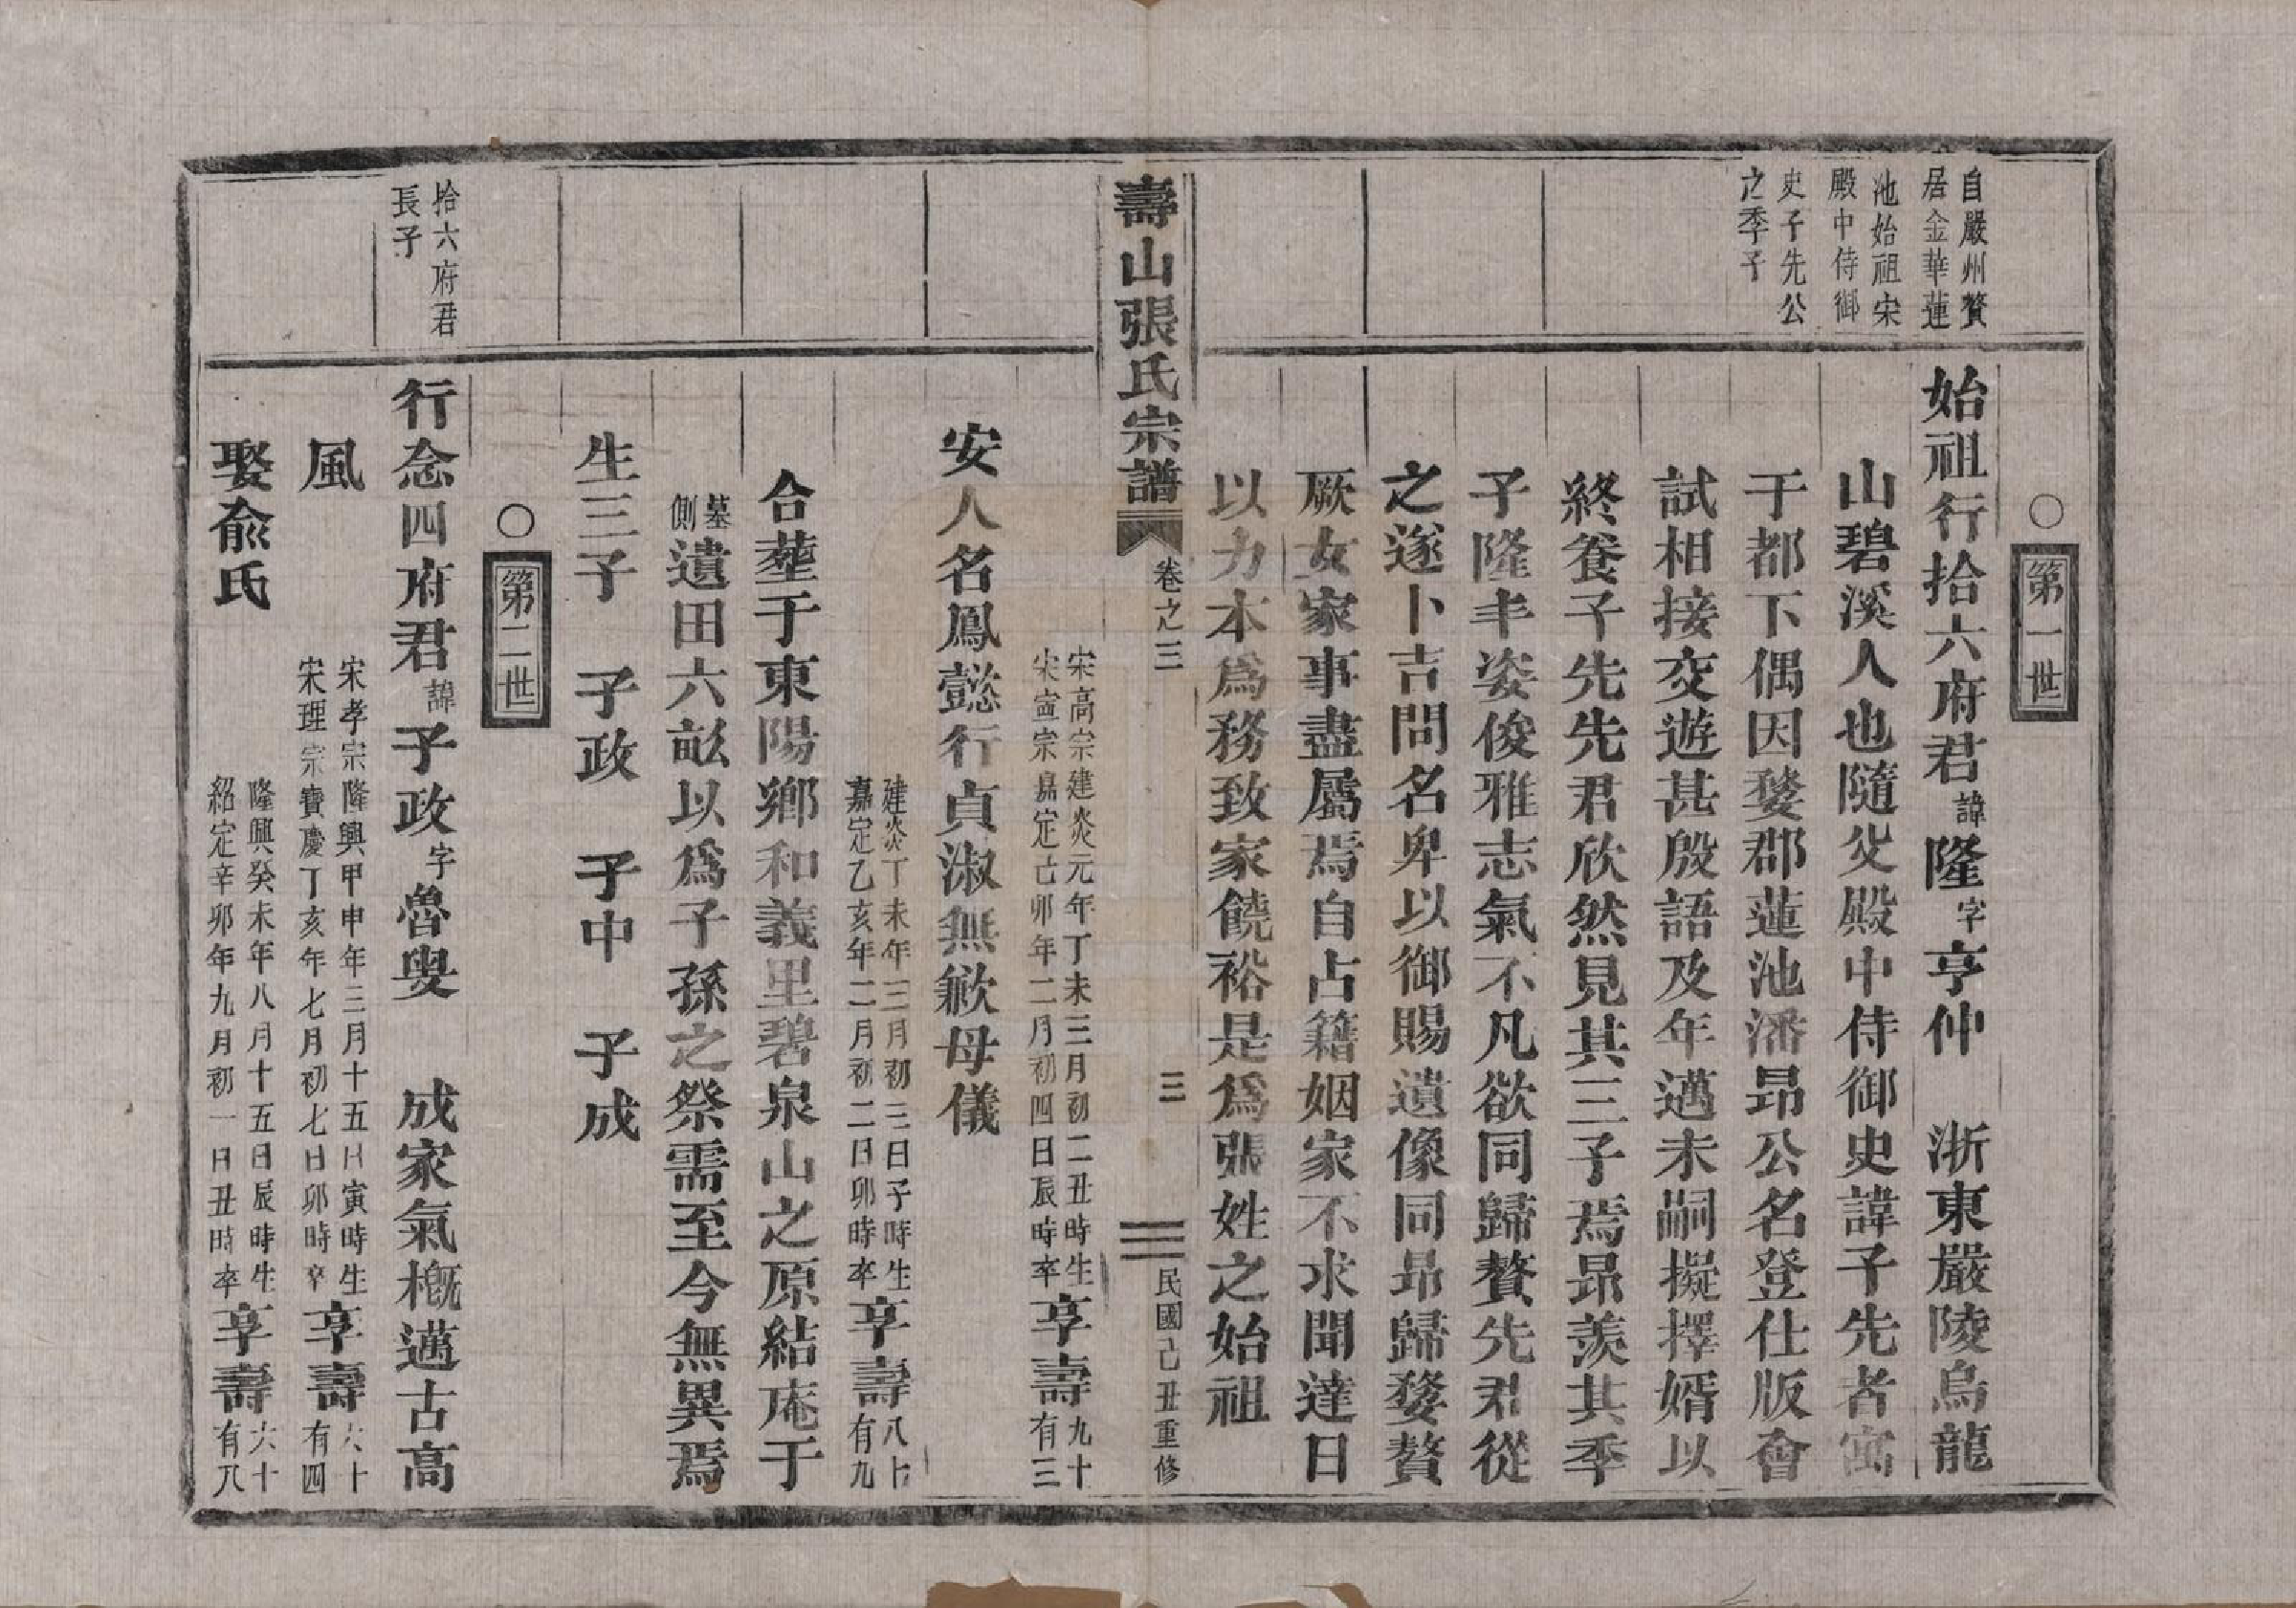 ○第一世
自嚴州贅
居金華蓮
池始祖宋
殿中侍御
史子先公
之季子
始祖行拾六府君諱隆字亨仲　浙東嚴陵烏龍
山碧溪人也隨父殿中侍御史諱子先者寓
于都下偶因婺郡蓮池潘昂公名登仕版會
試相接交遊甚殷語及年邁未嗣擬擇婿以
終養子先先君欣然見其三子焉昂羨其季
子隆丰姿俊雅志氣不凡欲同歸贅先君從
之遂卜吉問名卑以御賜遺像同昂歸婺贅
厥女家事盡屬焉自占籍姻家不求聞達日
以力本爲務致家饒裕是爲張姓之始祖
壽山張氏宗譜　卷之三　三　民國己丑重修
宋高宗建炎元年丁未三月初二丑時生
宋寧宗嘉定己卯年二月初四日辰時卒
享壽九十有三
安人名鳳懿行貞淑無歉母儀
建炎丁未年三月初三日子時生
嘉定乙亥年二月初二日卯時卒
享壽八十有九
合塟于東陽鄉和義里碧泉山之原結庵于
墓側遺田六畝以爲子孫之祭需至今無異焉
生三子　子政　子中　子成
○第二世
拾六府君
長子
行念四府君諱子政字魯奥　成家氣槪邁古高
風
宋孝宗隆興甲申年三月十五日寅時生
宋理宗寶慶丁亥年七月初七日卯時卒
享壽六十有四
娶俞氏
隆興癸未年八月十五日辰時生
紹定辛卯年九月初一日丑時卒
享壽六十有八